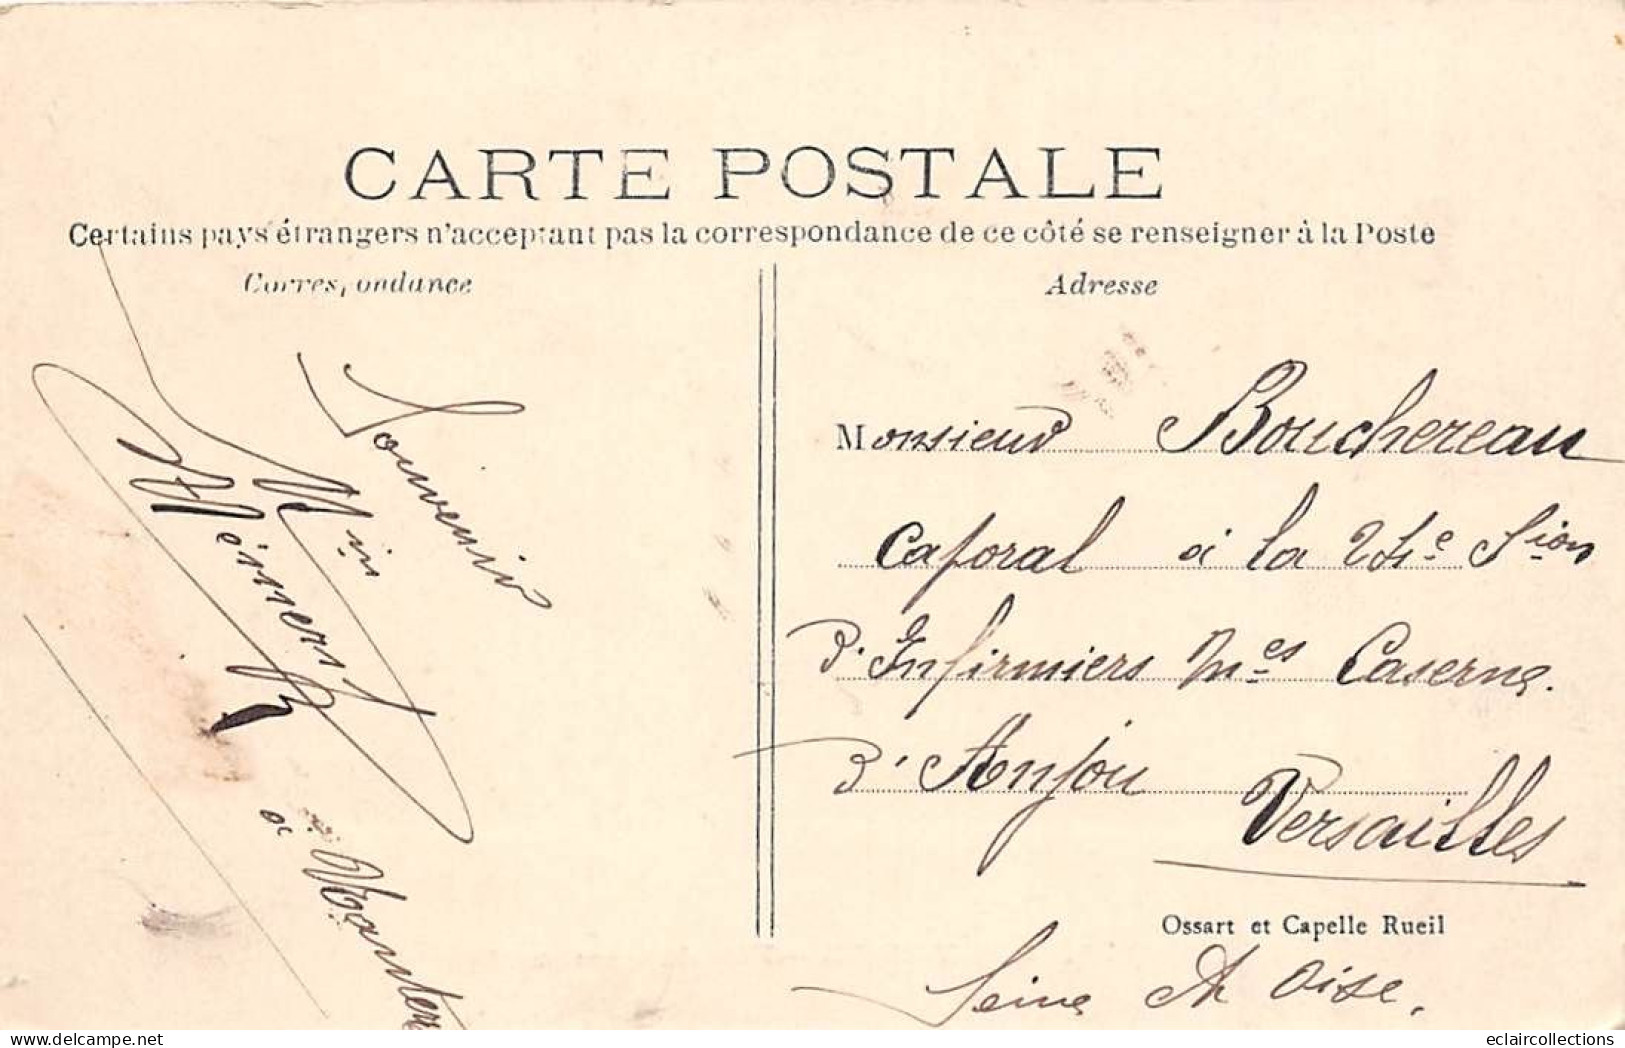 CARTE POSTALE
Certains pays étrangers n'acceptant pas la correspondance de ce côté se renseigner à la Poste
Correspondance
Adresse
Souvenir
à Nanterre
Monsieur Bouchereau
Caporal à la 24e Sion
D'Infirmiers Mes Caserne
D'Anjou
Versailles
Ossart et Capelle Rueil
Seine et Oise.
eclaircollections